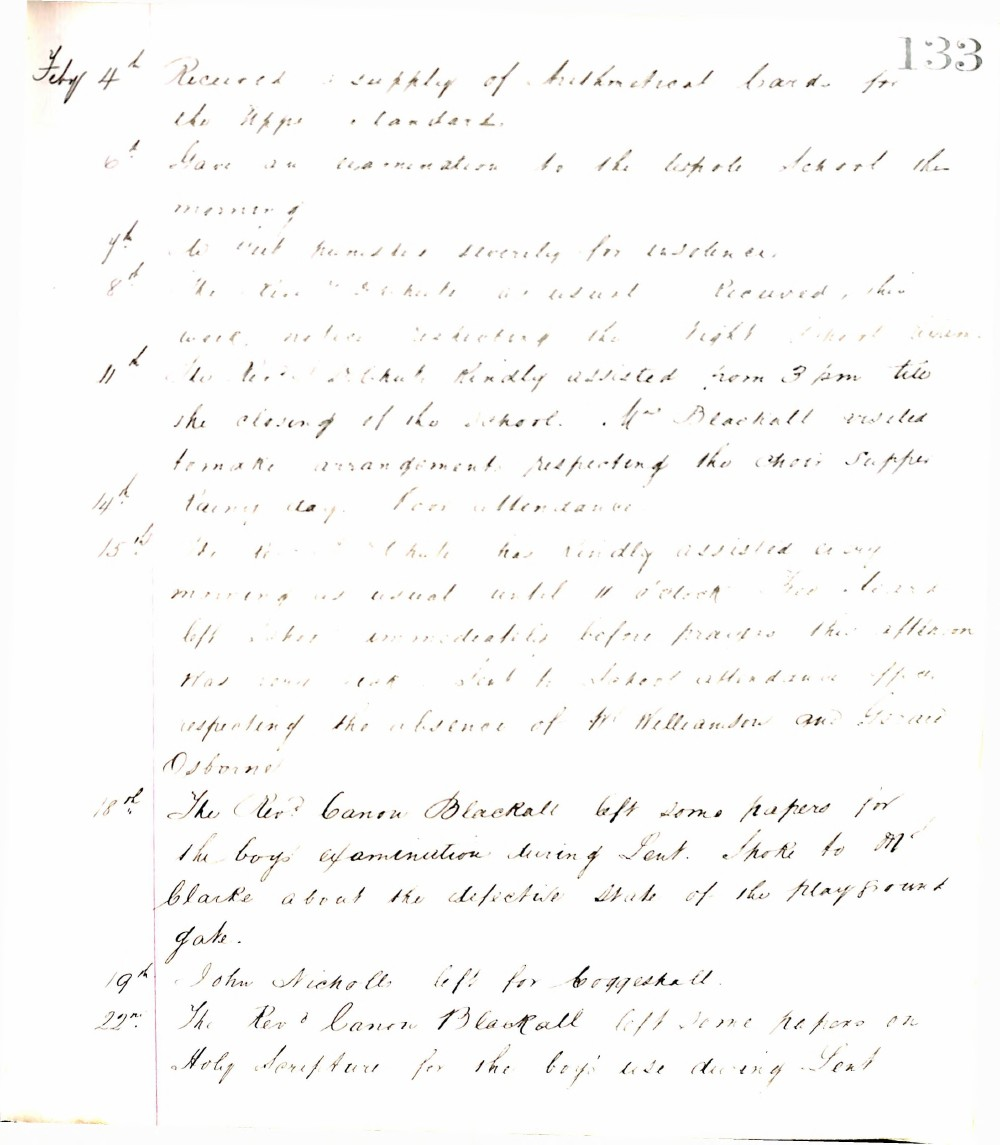 133
Feby 4th Received a supply of Arithmetical Cards for
the Upper Standard.
6th Gave an examination to the whole School the
morning
7th punished severely for insolence.
8th The as usual Received, this
week, notice respecting the Night School
11th The kindly assisted from 3 pm till
the closing of the School. Mrs Blackall visited
to make arrangements respecting the Choir Supper
14th Rainy day. Poor attendance
15th The has kindly assisted every
morning as usual until 11 o'clock
left immediately before prayers this afternoon
Was Sent to School attendance
respecting the absence of W Williamson and
Osborne
18th The Revd Canon Blackall left some papers for
the boys examination during Lent. Spoke to Mr
Clarke about the defective state of the playground
gate.
19th John Nicholls left for Coggeshall.
22nd The Revd Canon Blackall left some papers on
Holy Scripture for the boys' use during Lent